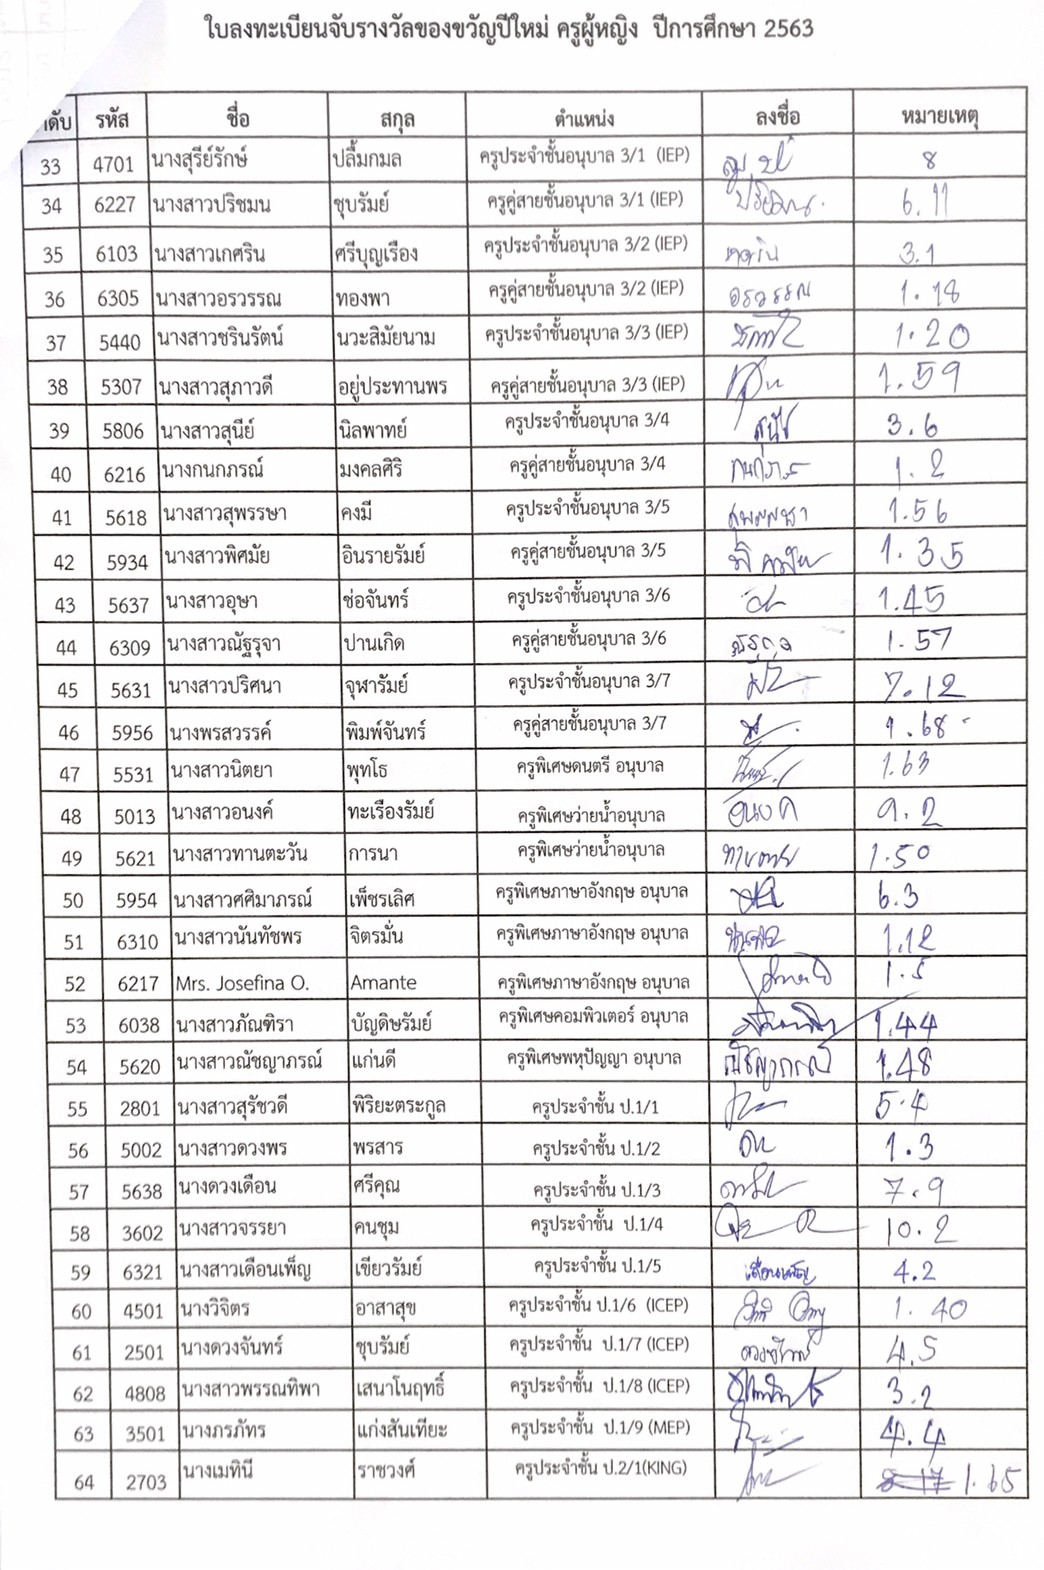 ใบลงทะเบียนจับรางวัลของขวัญปีใหม่ ครูผู้หญิง ปีการศึกษา 2563
ำดับ รหัส ชื่อ สกุล ตำแหน่ง ลงชื่อ หมายเหตุ
33 4701 นางสุรีย์รักษ์ ปลื้มกมล ครูประจำชั้นอนุบาล 3/1 (IEP) 8
34 6227 นางสาวปริชมน ชุบรัมย์ ครูคู่สายชั้นอนุบาล 3/1 (IEP) 6.11
35 6103 นางสาวเกศริน ศรีบุญเรือง ครูประจำชั้นอนุบาล 3/2 (IEP) 3.1
36 6305 นางสาวอรวรรณ ทองพา ครูคู่สายชั้นอนุบาล 3/2 (IEP) อรวรรณ 1.18
37 5440 นางสาวชรินรัตน์ นวะสิมัยนาม ครูประจำชั้นอนุบาล 3/3 (IEP) 1.20
38 5307 นางสาวสุภาวดี อยู่ประทานพร ครูคู่สายชั้นอนุบาล 3/3 (IEP) 1.59
39 5806 นางสาวสุนีย์ นิลพาทย์ ครูประจำชั้นอนุบาล 3/4 3.6
40 6216 นางกนกภรณ์ มงคลศิริ ครูคู่สายชั้นอนุบาล 3/4 1.2
41 5618 นางสาวสุพรรษา คงมี ครูประจำชั้นอนุบาล 3/5 1.56
42 5934 นางสาวพิศมัย อินรายรัมย์ ครูคู่สายชั้นอนุบาล 3/5 1.35
43 5637 นางสาวอุษา ช่อจันทร์ ครูประจำชั้นอนุบาล 3/6 1.45
44 6309 นางสาวณัฐรุจา ปานเกิด ครูคู่สายชั้นอนุบาล 3/6 1.57
45 5631 นางสาวปริศนา จุฬารัมย์ ครูประจำชั้นอนุบาล 3/7 7.12
46 5956 นางพรสวรรค์ พิมพ์จันทร์ ครูคู่สายชั้นอนุบาล 3/7 1.68
47 5531 นางสาวนิตยา พุทโธ ครูพิเศษดนตรี อนุบาล 1.63
48 5013 นางสาวอนงค์ ทะเรืองรัมย์ ครูพิเศษว่ายน้ำอนุบาล 9.2
49 5621 นางสาวทานตะวัน การนา ครูพิเศษว่ายน้ำอนุบาล 1.50
50 5954 นางสาวศศิมาภรณ์ เพ็ชรเลิศ ครูพิเศษภาษาอังกฤษ อนุบาล 6.3
51 6310 นางสาวนันทัชพร จิตรมั่น ครูพิเศษภาษาอังกฤษ อนุบาล 1.12
52 6217 Mrs. Josefina O. Amante ครูพิเศษภาษาอังกฤษ อนุบาล 1.5
53 6038 นางสาวภัณฑิรา บัญดิษรัมย์ ครูพิเศษคอมพิวเตอร์ อนุบาล 1.44
54 5620 นางสาวณัชญาภรณ์ แก่นดี ครูพิเศษพหุปัญญา อนุบาล ณัชญาภรณ์ 1.48
55 2801 นางสาวสุรัชวดี พิริยะตระกูล ครูประจำชั้น ป.1/1 5.4
56 5002 นางสาวดวงพร พรสาร ครูประจำชั้น ป.1/2 1.3
57 5638 นางดวงเดือน ศรีคุณ ครูประจำชั้น ป.1/3 7.9
58 3602 นางสาวจรรยา คนชุม ครูประจำชั้น ป.1/4 10.2
59 6321 นางสาวเดือนเพ็ญ เขียวรัมย์ ครูประจำชั้น ป.1/5 เดือนเพ็ญ 4.2
60 4501 นางวิจิตร อาสาสุข ครูประจำชั้น ป.1/6 (ICEP) 1.40
61 2501 นางดวงจันทร์ ชุบรัมย์ ครูประจำชั้น ป.1/7 (ICEP) ดวงจันทร์ 4.5
62 4808 นางสาวพรรณทิพา เสนาโนฤทธิ์ ครูประจำชั้น ป.1/8 (ICEP) 3.2
63 3501 นางภรภัทร แก่งสันเทียะ ครูประจำชั้น ป.1/9 (MEP) 4.4
64 2703 นางเมทินี ราชวงศ์ ครูประจำชั้น ป.2/1(KING) 1.65